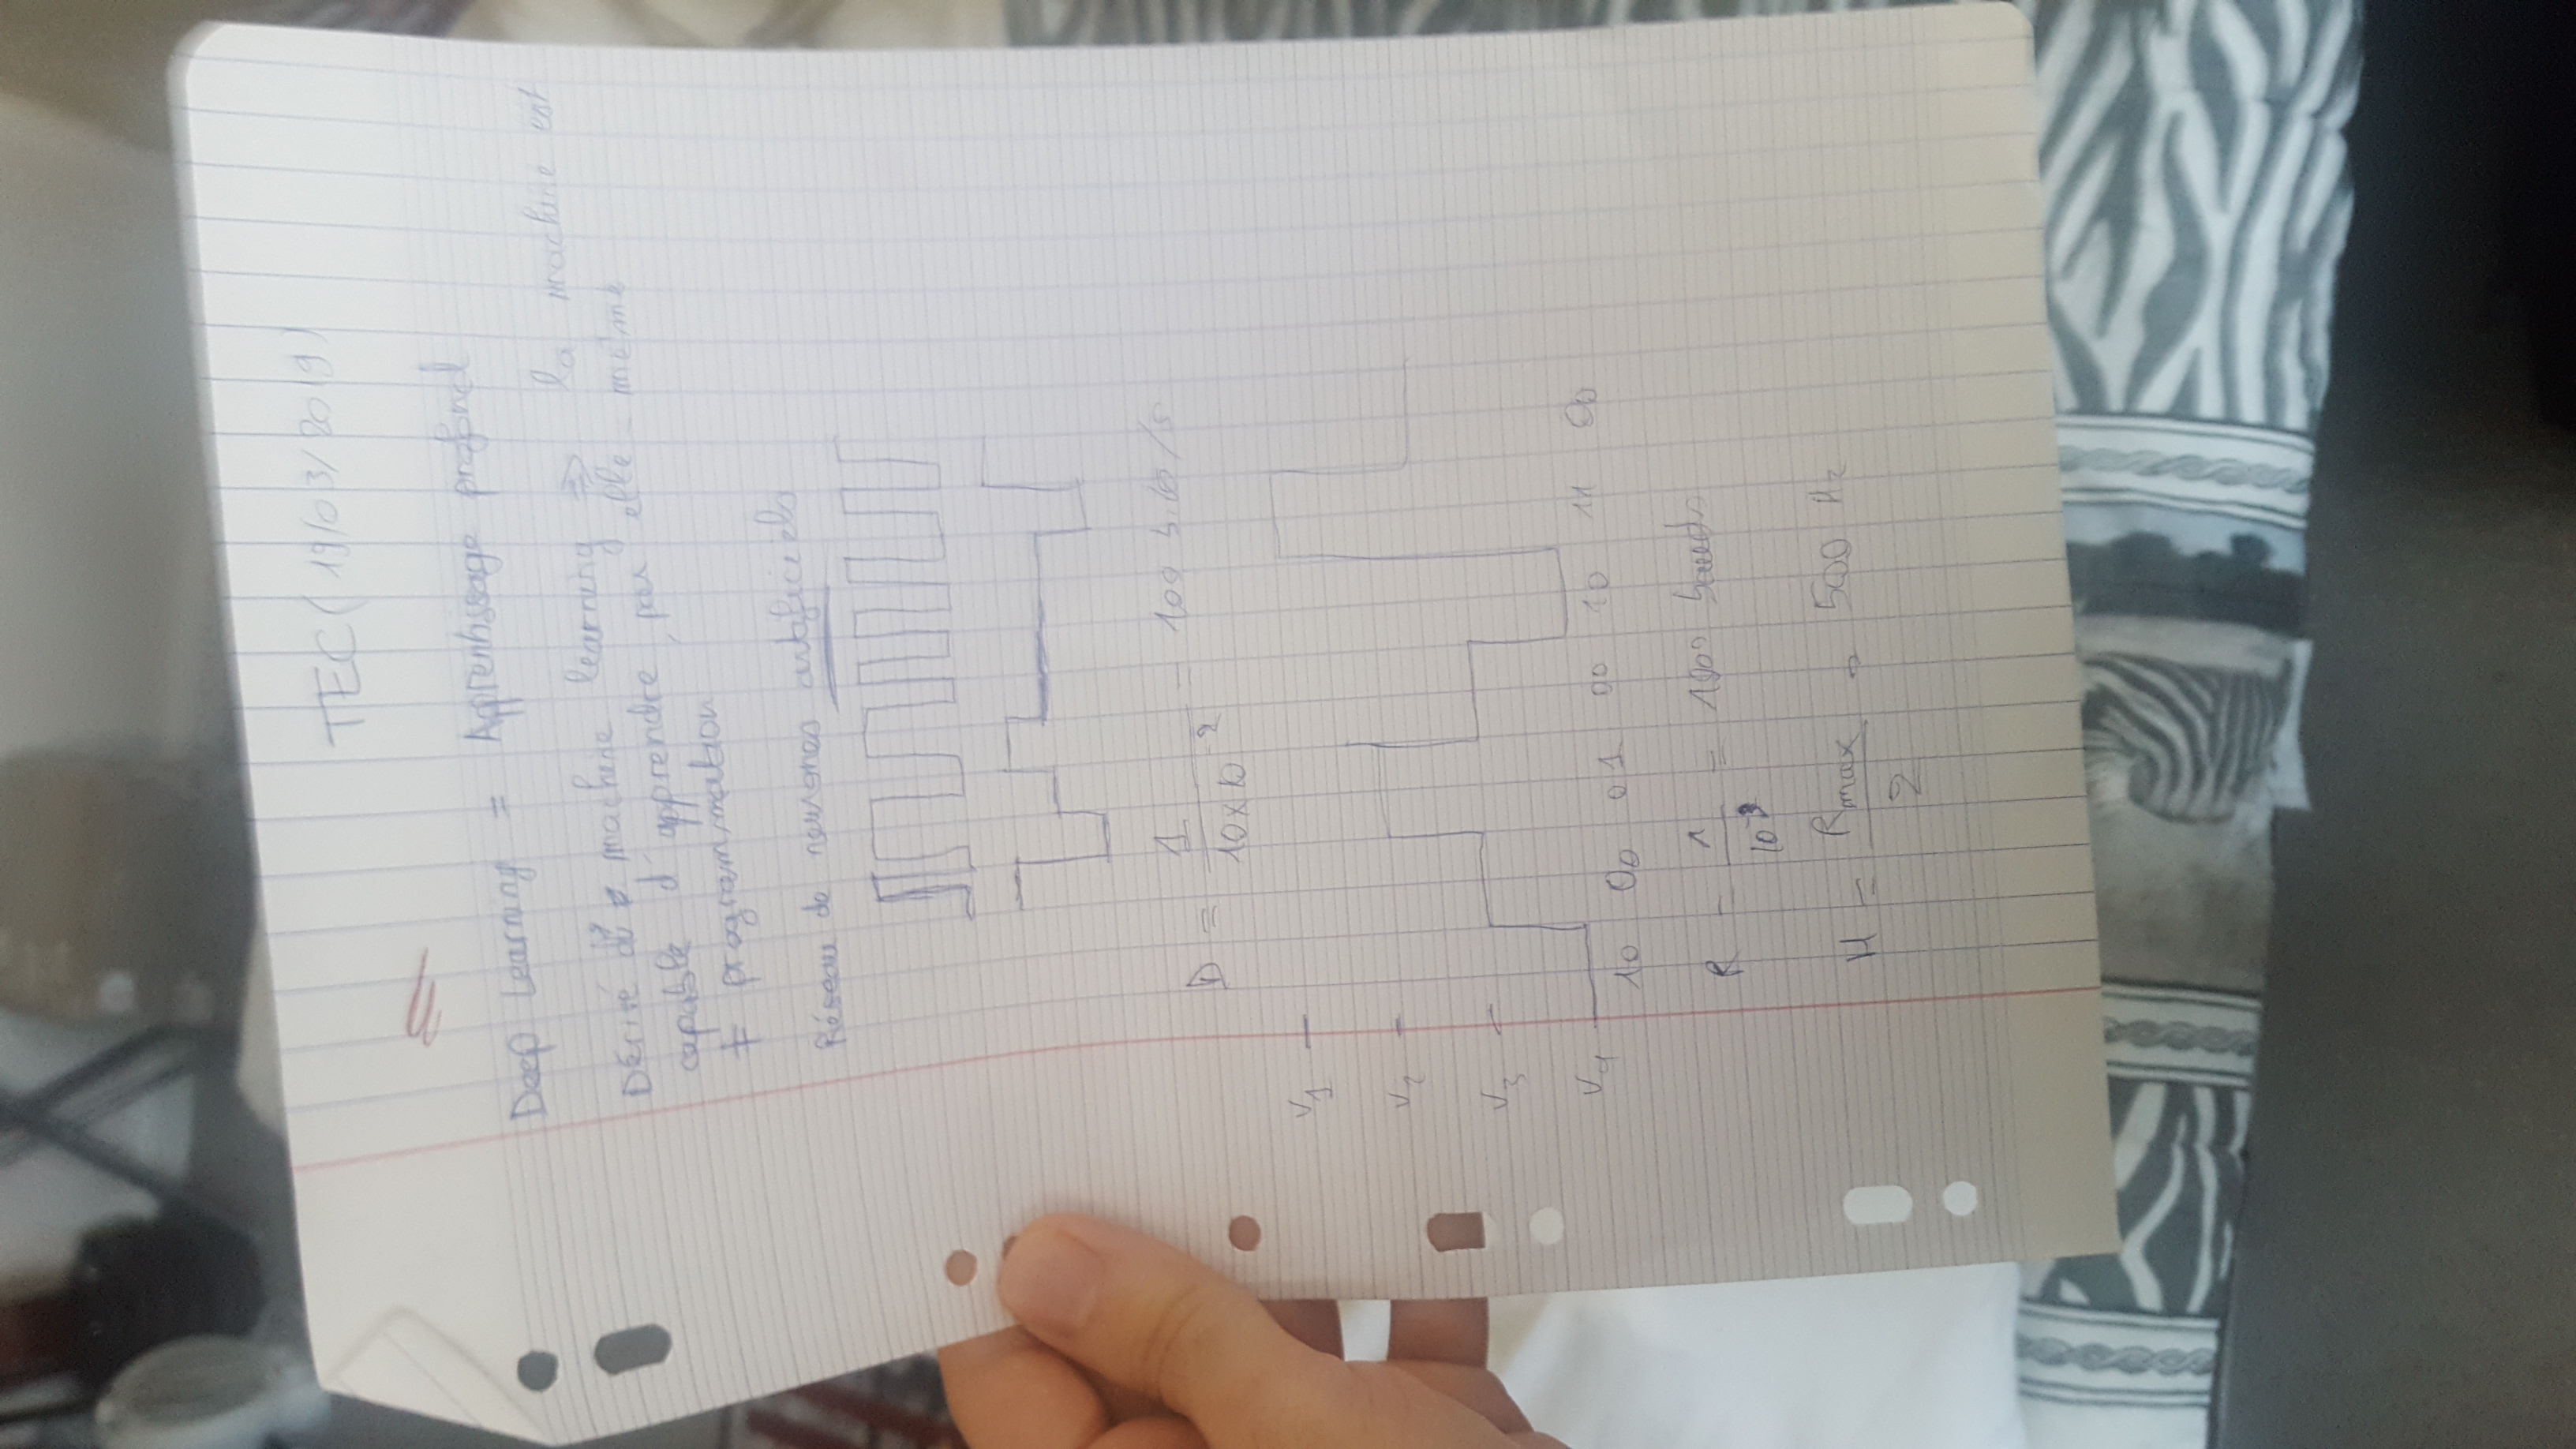 TEC (19/03/2019)
Deep Learning = Apprentissage profond
Dérivé du machine learning => la machine est
capable d'apprendre par elle-même
≠ programmation
Réseau de neurones artificiels
D = 1 / 10x10^-2 = 100 bits/s
V1
V2
V3
V4
10 00 01 00 10 11 00
R = 1 / 10^-3 = 1000 bauds
H = Rmax / 2 = 500 Hz